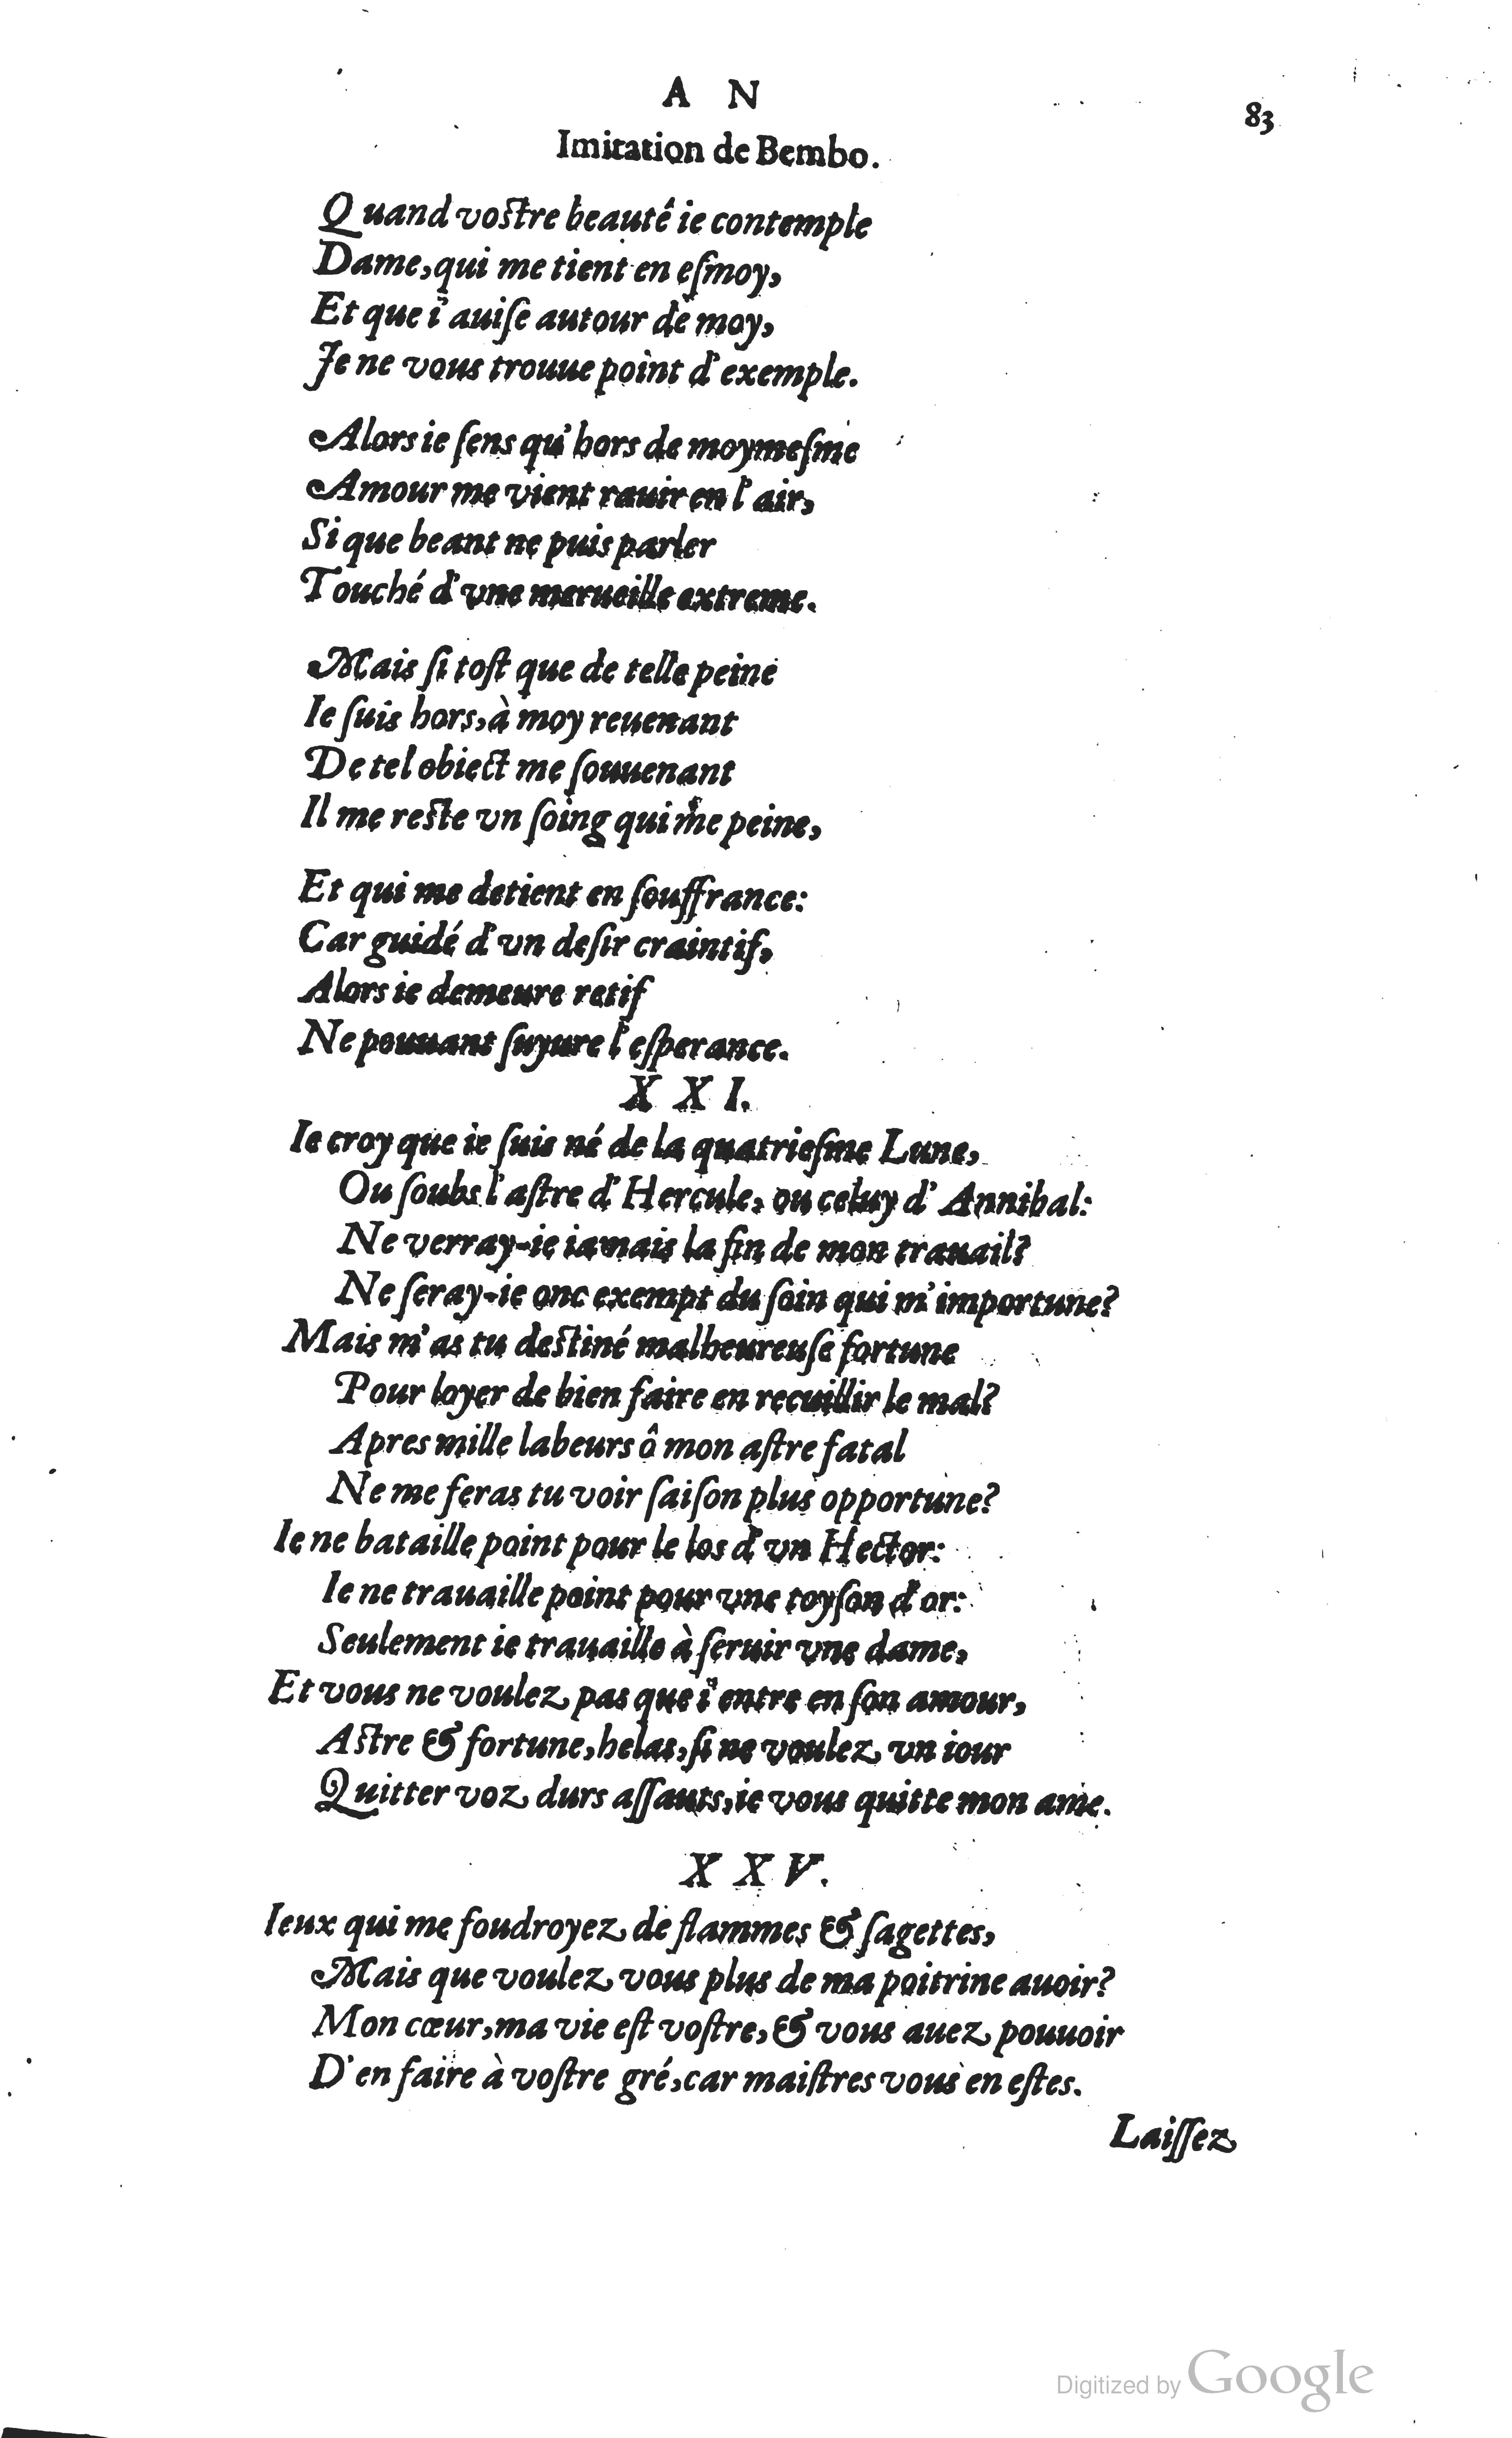 A N
83
Imitation de Bembo.
Quand vostre beauté ie contemple
Dame, qui me tient en eſmoy,
Et que i'auiſe autour de moy,
Je ne vous trouue point d'exemple.
Alors ie ſens qu'hors de moymeſme
Amour me vient rauir en l'air,
Si que beant ne puis parler
Touché d'vne merueille extreme.
Mais ſi toſt que de telle peine
Ie ſuis hors, à moy reuenant
De tel obiect me ſouuenant
Il me reste vn ſoing qui me peine,
Et qui me detient en ſouffrance:
Car guidé d'vn deſir craintif,
Alors ie demeure retif
Ne pouuant ſuyure l'eſperance.
X X I.
Ie croy que ie ſuis né de la quatrieſme Lune,
Ou ſoubs l'aſtre d'Hercule, ou celuy d'Annibal:
Ne verray-ie iamais la fin de mon trauail?
Ne ſeray-ie onc exempt du ſoin qui m'importune?
Mais m'as tu destiné malheureuſe fortune
Pour loyer de bien faire en recuillir le mal?
Apres mille labeurs ô mon aſtre fatal
Ne me feras tu voir ſaiſon plus opportune?
Ie ne bataille point pour le los d'vn Hector:
Ie ne trauaille point pour vne toyſon d'or:
Seulement ie trauaille à ſeruir vne dame,
Et vous ne voulez pas que i'entre en ſon amour,
Astre & fortune, helas, ſi ne voulez vn iour
Quitter voz durs aſſauts, ie vous quitte mon ame.
X X V.
Ieux qui me foudroyez de flammes & ſagettes,
Mais que voulez vous plus de ma poitrine auoir?
Mon cœur, ma vie eſt voſtre, & vous auez pouuoir
D'en faire à voſtre gré, car maiſtres vous en eſtes.
Laiſſez
Digitized by Google